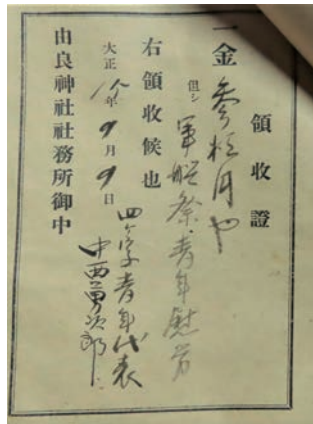 領收證
一金 参拾円也
但シ 軍艦祭青年慰労
右領收候也
大正 十八年 9 月 9 日
四ケ字青年代表
中西勇次郎
由良神社社務所御中